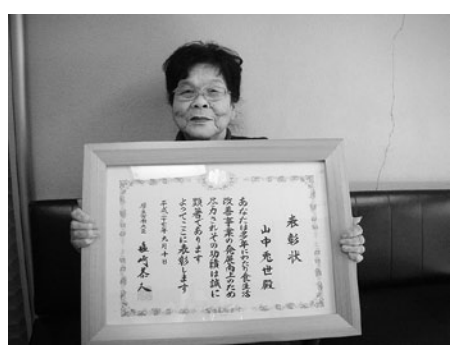 表彰状
山中兎世殿
あなたは多年にわたり食生活
改善事業の発展向上のため
尽力されその功績は誠に
顕著であります
よってここに表彰します
平成二十七年九月十日
厚生労働大臣 塩崎恭久